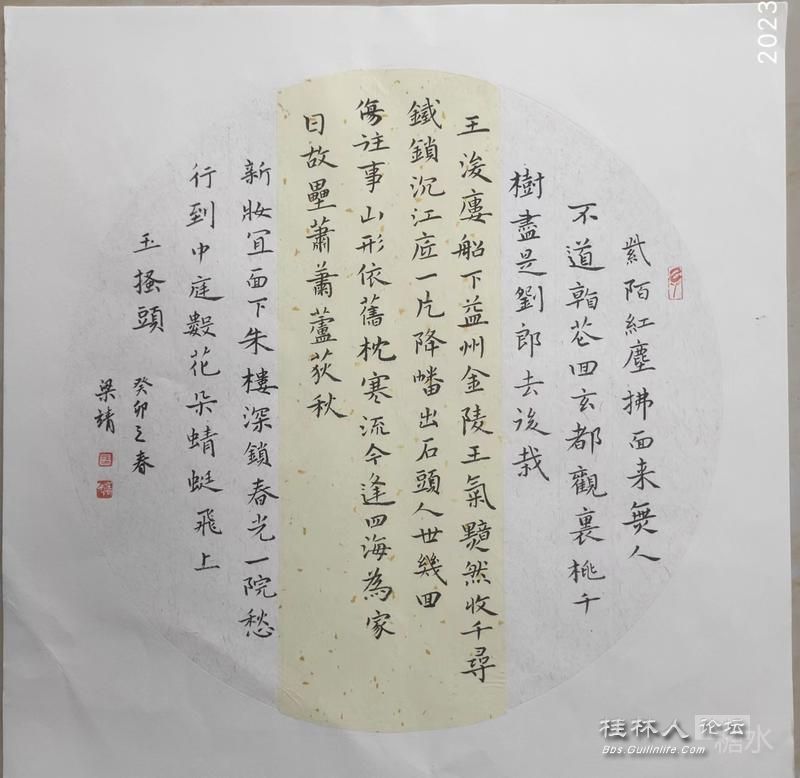 紫陌紅塵拂面来無人
不道看花回玄都觀裏桃千
樹盡是劉郎去後栽
王濬樓船下益州金陵王氣黯然收千尋
鐵鎖沉江底一片降幡出石頭人世幾回
傷往事山形依舊枕寒流今逢四海為家
日故壘蕭蕭蘆荻秋
新妝宜面下朱樓深鎖春光一院愁
行到中庭數花朵蜻蜓飛上
玉搔頭
癸卯之春
梁靖
2023
桂林人论坛
Bbs.Guilinlife.com